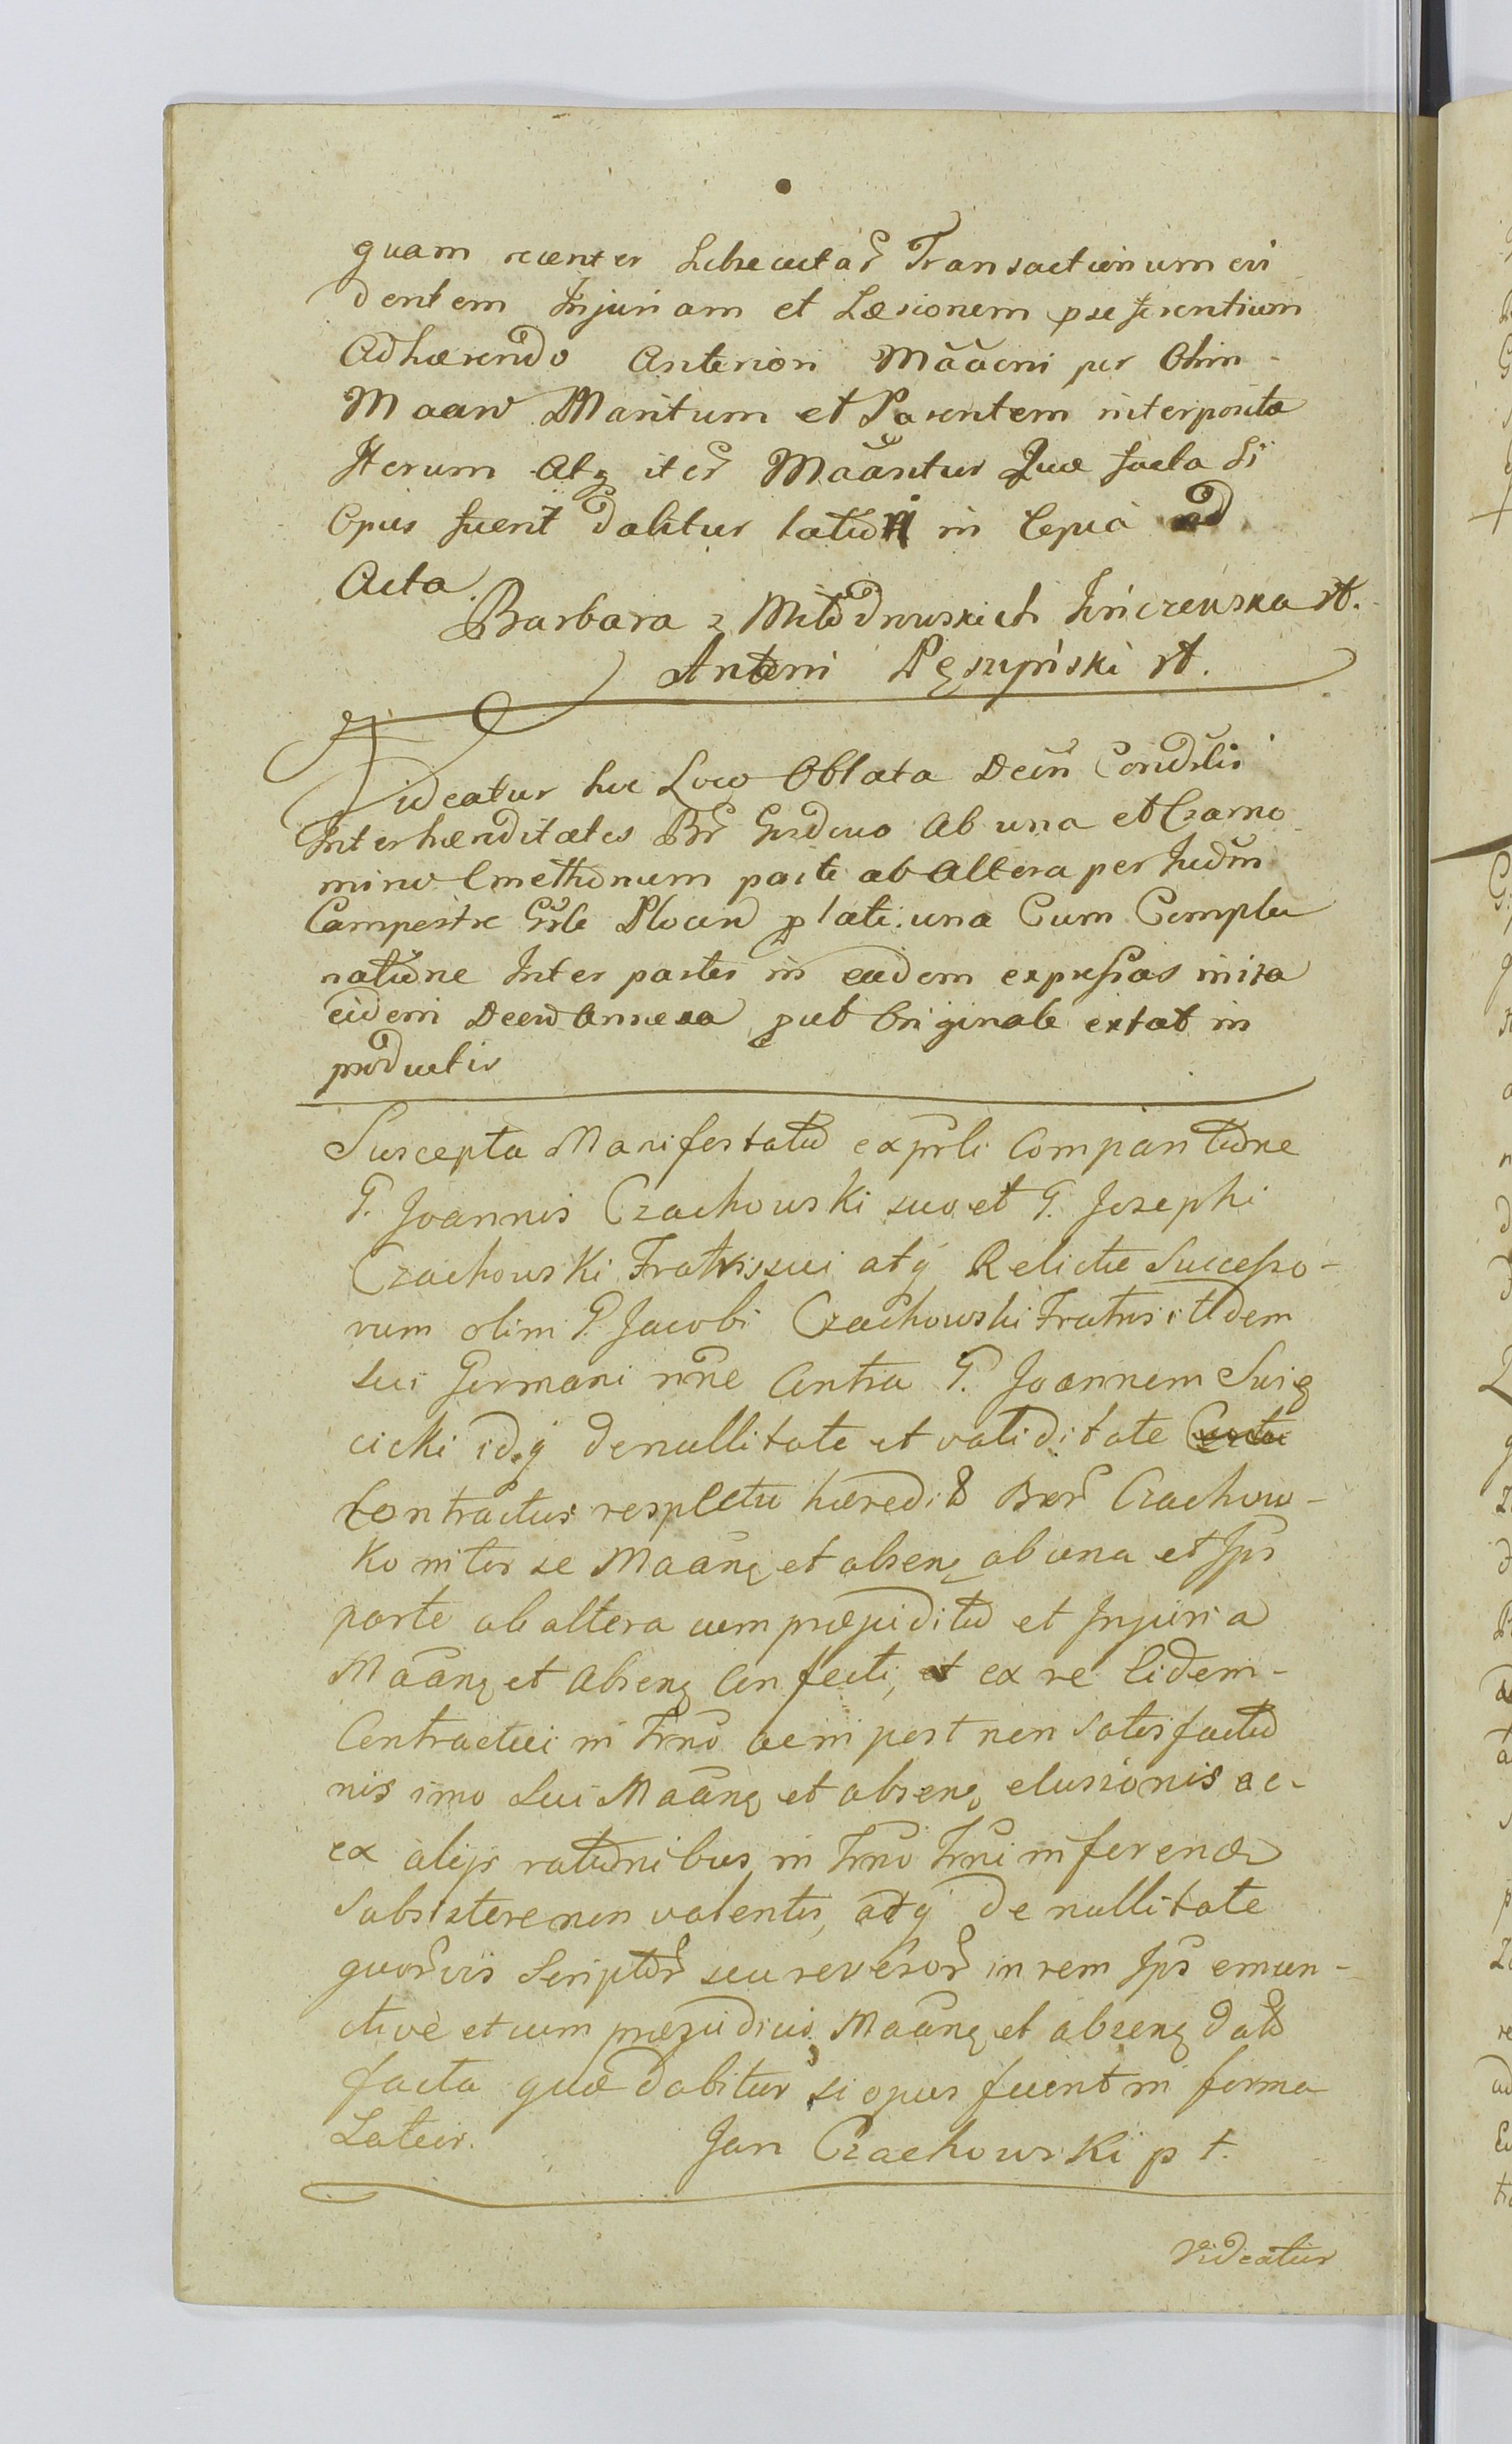 quam recenter Subsecutar Transactionum evi
dentem Injuriam et Læsionem præ se ferentium
Adhærendo Anteriori Mããoni per Olim -
Maaw Maritum et Parentem interposita
Iterum Atq iter Mããntur Quæ facta Si
Opus fuerit dabitur latior in Copia ad
Acta.
Barbara z Młodnowskich
Antoni Pęszyński
Videatur hic Loco Oblata Decñ Condslis
Inter hæreditates Br ab una et Czarno
minw Cmethonum parte ab Altera per Judm
Campestre Plocen lati una Cum Compla
natione Inter partes in eadem expressas inita
eidem Decrto Annexa put Originale extat in
productis
Suscepta Manifestatio ex psli Comparitione
G. Joannis Czachowski suo et G. Josephi
Czachowski Fratris sui atq Relictæ Successo-
rum olim G. Jacobi Czachowski Fratris itidem
sui Germani nñe Contra G. Joannem Swię
cicki idq de nullitate et validitate
Contractus respectu hæredit Bor Czachow-
ko inter se Mããng et abseng ab una et Ips
parte ab altera cum præjuditio et Injuria
Mããng et Abseng Confecti, et ex re Eidem -
Contractui in Trno aem post non satisfactio
nis imo Sui Mããng et abseng elusionis ac -
ex alijs rationibus in Trno Trni inferend
Subsistere non valentis, adq de nullitate
quorvis Scriptor seu reversor in rem Ips emun-
ctive et cum præjudicio Mããng et abseng dato
facta quæ dabitur si opus fuerit in forma
Latior.
Jan Czachowski p t.
Videatur